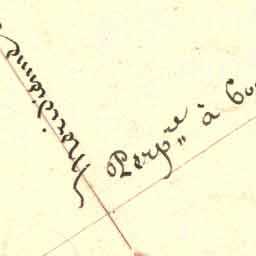 Meridienne
Perp.re à